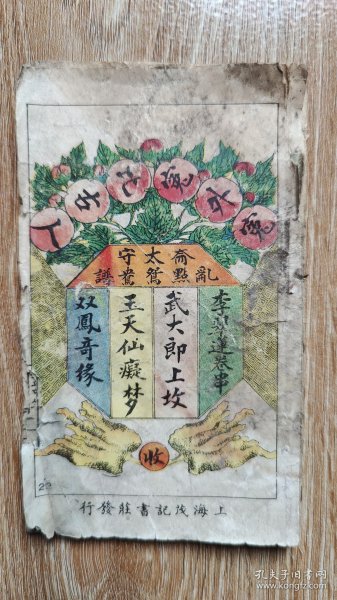 冤外冤女人
喬太守
亂點鴛鴦譜
李莲卷串
武大郎上坟
王天仙癡梦
双鳳奇缘
收
上海茂記書莊發行
孔夫子旧书网